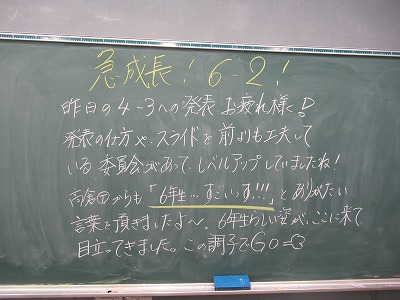 急成長！6-2！
昨日の4-3への発表お疲れ様！
発表の仕方や、スライドを前よりも工夫して
いる委員会があって、レベルアップしていましたね！
倉田からも「6年生…すごいっす!!!」とありがたい
言葉を頂きましたよ〜。6年生らしい姿が、ここに来て
目立ってきました。この調子でGO=3